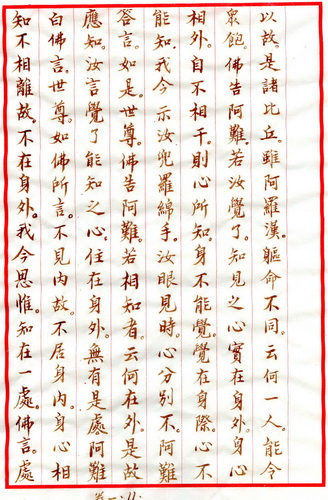 以故。是諸比丘。雖阿羅漢。軀命不同。云何一人。能令
眾飽。佛告阿難。若汝覺了。知見之心。實在身外。身心
相外。自不相干。則心所知。身不能覺。覺在身際。心不
能知。我今示汝兜羅綿手。汝眼見時。心分別不。阿難
答言。如是。世尊。佛告阿難。若相知者。云何在外。是故
應知。汝言覺了能知之心。住在身外。無有是處。阿難
白佛言。世尊。如佛所言。不見內故。不居身內。身心相
知。不相離故。不在身外。我今思惟。知在一處。佛言。處
卷一.11.